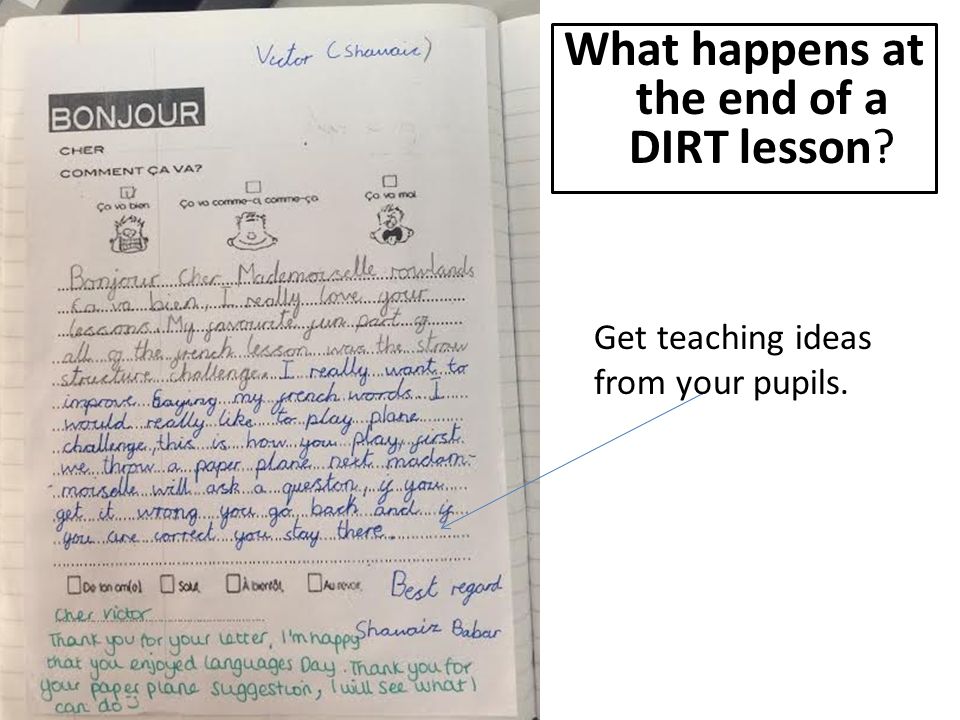 Victor (Shanaiz)
BONJOUR
CHER
COMMENT ÇA VA?
Ça va bien
Ça va comme-ci, comme-ça
Ça va mal
Bonjour Cher Mademoiselle rowlands
Ça va bien, I really love your
lessons. My favourite fun part of
all of the french lesson was the straw
structure challenge. I really want to
improve saying my french words. I
would really like to play plane
challenge, this is how you play, first
we throw a paper plane next madam-
-moiselle will ask a queston, if you
get it wrong you go back and if
you are correct you stay there.
De ton am(e)
Salut,
À bientôt,
Au revoir,
Best regard
Shanaiz Babar
Cher Victor
Thank you for your letter, I'm happy
that you enjoyed languages Day. Thank you for
your paper plane suggestion, I will see what I
can do
What happens at
the end of a
DIRT lesson?
Get teaching ideas
from your pupils.